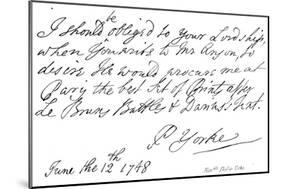 I should be oblig'd to your Lordship,
when You write to Mr Anson, to
desire He would procure me at
Paris the best Set of Prints after
Le Bruns Battles &
P Yorke
June the 12th 1748